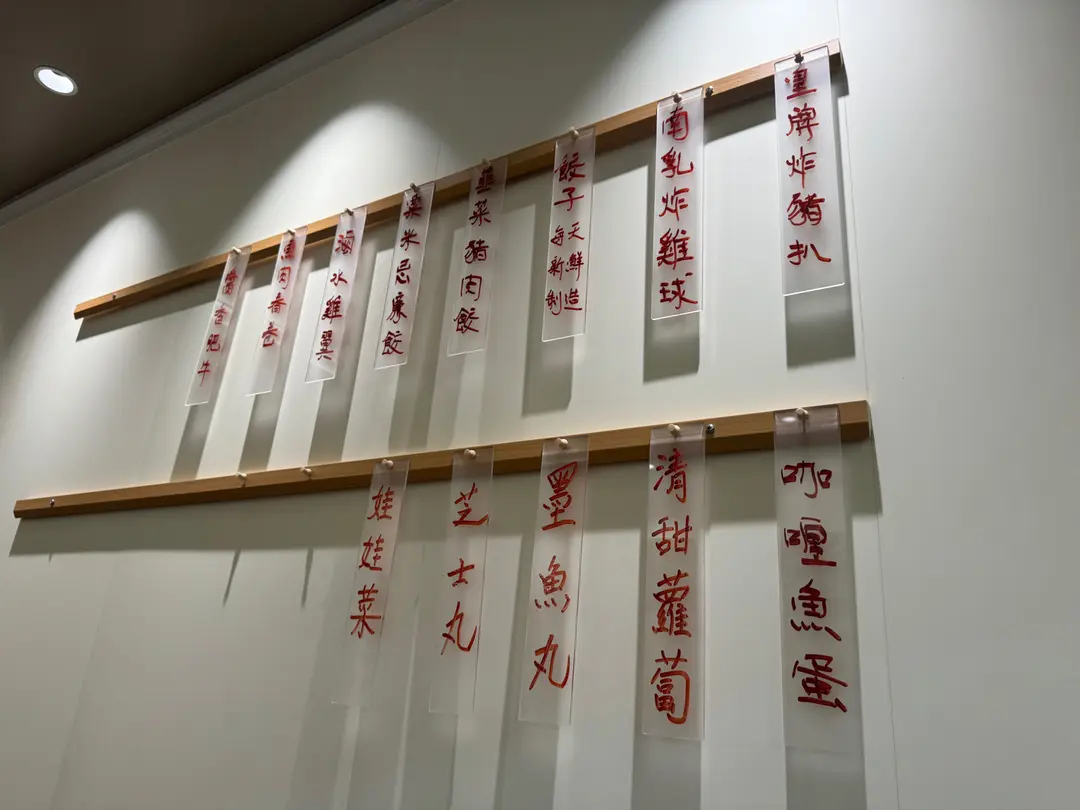 皇牌炸豬扒
南乳炸雞球
餃子
每天
新鮮
制造
韮菜豬肉餃
粟米忌廉餃
滷水雞翼
魚肉春卷
香肥牛
咖喱魚蛋
清甜蘿蔔
墨魚丸
芝士丸
娃娃菜